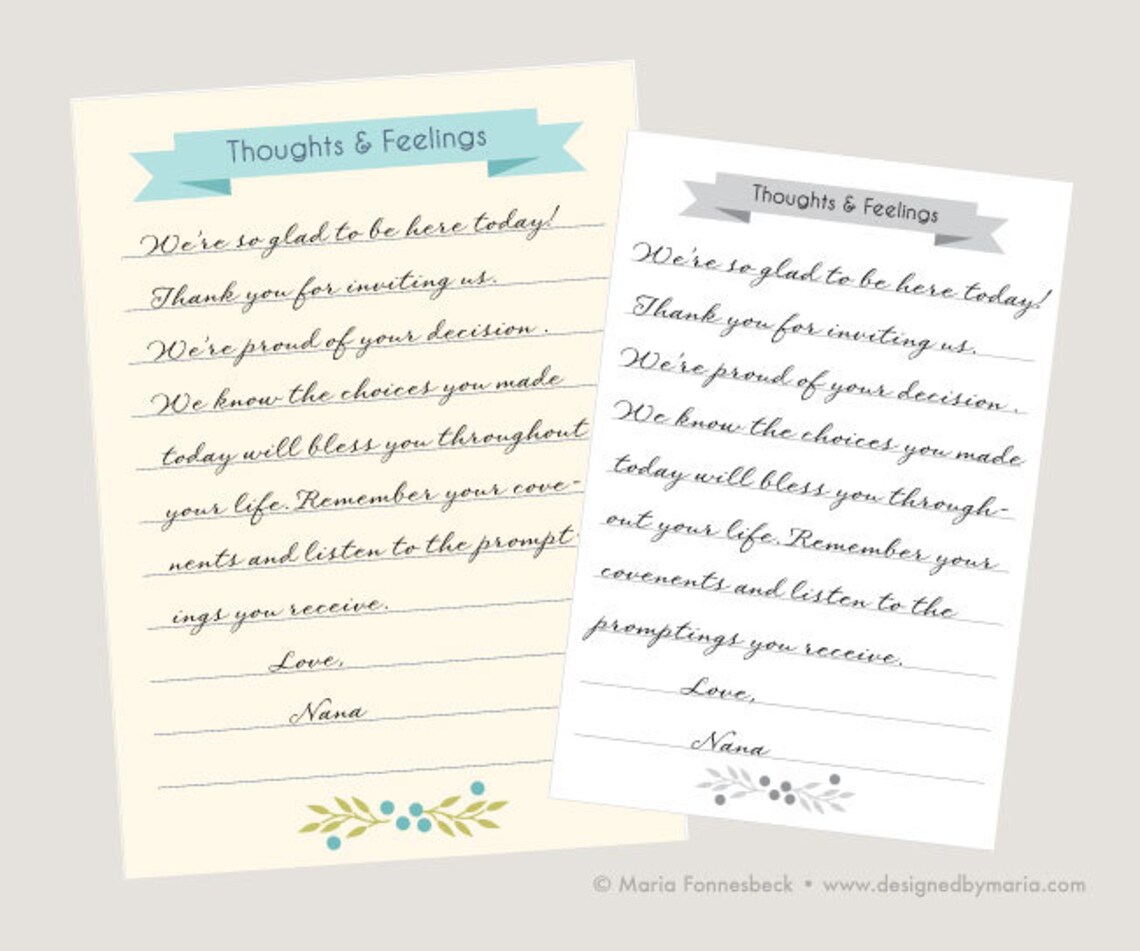 Thoughts & Feelings
We're so glad to be here today!
Thank you for inviting us.
We're proud of your decision .
We know the choices you made
today will bless you throughout
your life. Remember your cove-
nents and listen to the prompt-
ings you receive.
Love,
Nana
Thoughts & Feelings
We're so glad to be here today!
Thank you for inviting us.
We're proud of your decision .
We know the choices you made
today will bless you through-
out your life. Remember your
covenents and listen to the
promptings you receive.
Love,
Nana
© Maria Fonnesbeck • www.designedbymaria.com